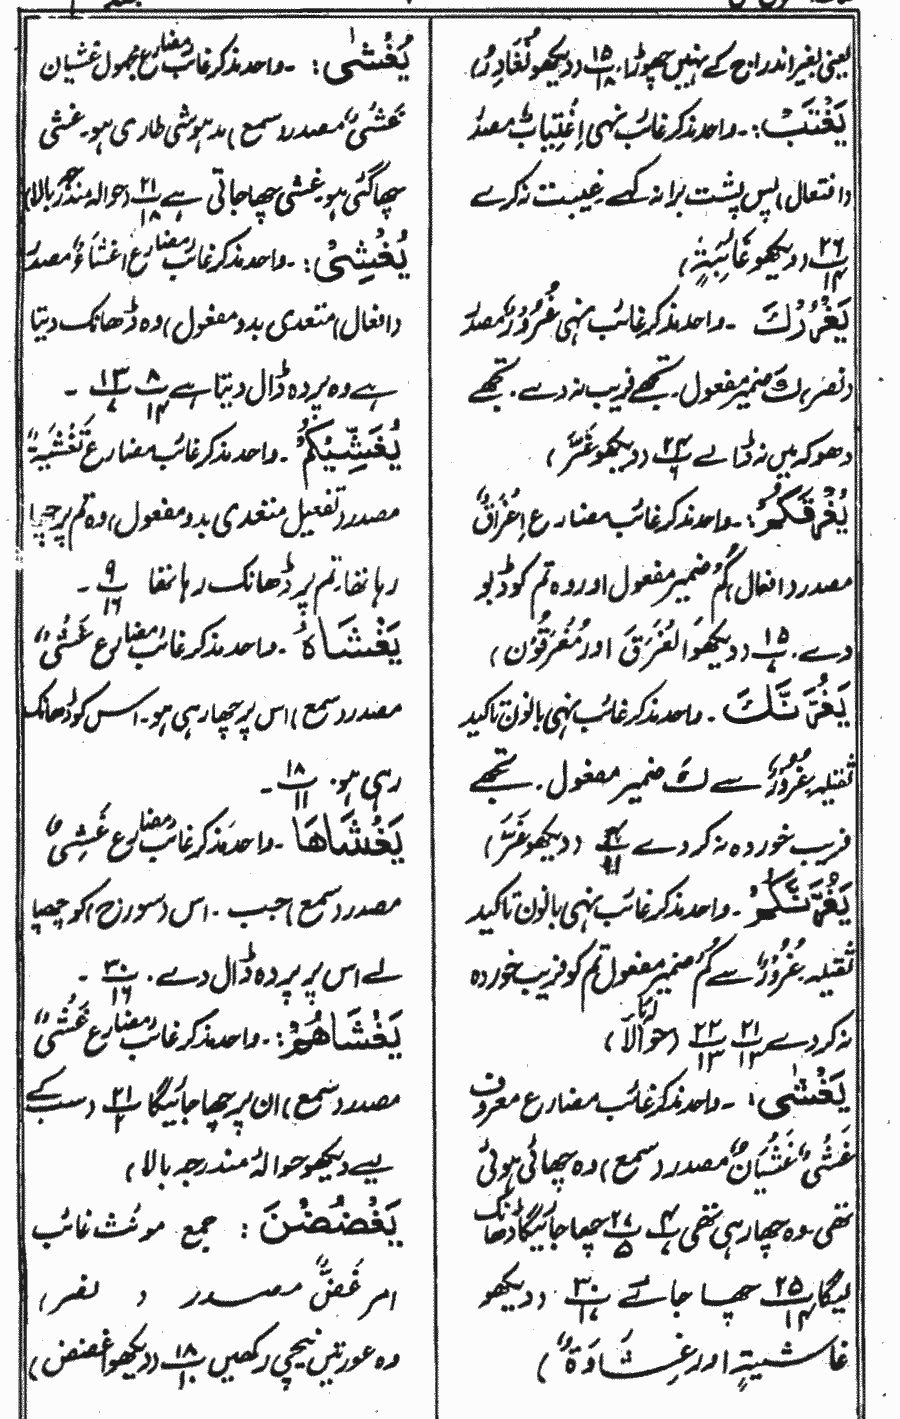 یعنی بغیر اندراج کے نہیں چھوڑا۔ ۱۵/۱۸ (دیکھو نُغَادِرُ)
یَغْتَبْ: ۔ واحد مذکر غائب نہی اِغْتِیَابٌ مصدر
(افتعال) پس پشت برا نہ کہے۔ غیبت نہ کرے
۲۶/۱۴ (دیکھو غَائِبَۃٍ)
یَغْرُرْكَ ۔ واحد مذکر غائب نہی غُرُوْرٌ مصدر
(نصر) كَ ضمیر مفعول۔ تجھے فریب نہ دے۔ تجھے
دھوکہ میں نہ ڈالے ۲۴/۶ (دیکھو غَرَّ)
یُغْرِقَکُمْ: ۔ واحد مذکر غائب مضارع اِغْرَاقٌ
مصدر (افعال) کُمْ ضمیر مفعول اور وہ تم کو ڈبو
دے۔ ۱۵/۷ (دیکھو الغَرَقَ اور مُغْرَقُوْنَ)
یَغُرَّنَّكَ ۔ واحد مذکر غائب نہی بانون تاکید
ثقیلہ غُرُوْرٌ سے كَ ضمیر مفعول۔ تجھے
فریب خوردہ نہ کر دے (دیکھو غَرَّ)
یَغُرَّنَّکُمْ ۔ واحد مذکر غائب نہی بانون تاکید
ثقیلہ۔ غُرُوْرٌ سے کُمْ ضمیر مفعول تم کو فریب خوردہ
نہ کر دے ۲۱/۱۳ ۲۲/۱۳ (حوالا بالا)
یَغْشٰی: ۔ واحد مذکر غائب مضارع معروف
غَشْیٌ غَشَیَانٌ مصدر (سمع) وہ چھائی ہوئی
تھی۔ وہ چھا رہی تھی ۴/۷ ۲۷/۵ چھا جائیگا ڈھانک
لیگا ۲۵/۱۴ چھا جائے ۳۰/۱۷ (دیکھو
غاشیۃٍ اور غِشَاوَۃٌ)
یُغْشٰی: ۔ واحد مذکر غائب مضارع مجہول غشیان
غَشْیٌ مصدر (سمع) مدہوشی طاری ہو۔ غشی
چھا گئی ہو۔ غشی چھا جاتی ہے ۲۱/۱۸ (حوالہ مندرجہ بالا)
یُغْشِیْ: ۔ واحد مذکر غائب مضارع اغشاءٌ مصدر
(افعال) متعدی بدو مفعول) وہ ڈھانک دیتا
ہے وہ پردہ ڈال دیتا ہے ۸/۱۴ ۱۳/۷ ۔
یُغَشِّیْکُمُ ۔ واحد مذکر غائب مضارع تَغْشِیَۃٌ
مصدر (تفعیل متعدی بدو مفعول) وہ تم پر چھا
رہا تھا۔ تم پر ڈھانک رہا تھا ۹/۱۶ ۔
یَغْشَاہُ ۔ واحد مذکر غائب مضارع غَشْیٌ
مصدر (سمع) اس پر چھا رہی ہو۔ اس کو ڈھانک
رہی ہو۔ ۱۸/۱۱ ۔
یَغْشَاھَا ۔ واحد مذکر غائب مضارع غَشِیٌ
مصدر (سمع) جب ۔ اس (سورج) کو چھپا
لے اس پر پردہ ڈال دے۔ ۳۰/۱۶ ۔
یَغْشَاھُمْ: ۔ واحد مذکر غائب مضارع غَشْیٌ
مصدر (سمع) ان پر چھا جائیگا ۲۱/۲ (سب کے
لیے دیکھو حوالۂ مندرجہ بالا)
یَغْضُضْنَ : جمع مونث غائب
امر غَضٌّ مصدر ( نصر )
وہ عورتیں نیچی رکھیں ۱۸/۱۰ (دیکھو اغضض)